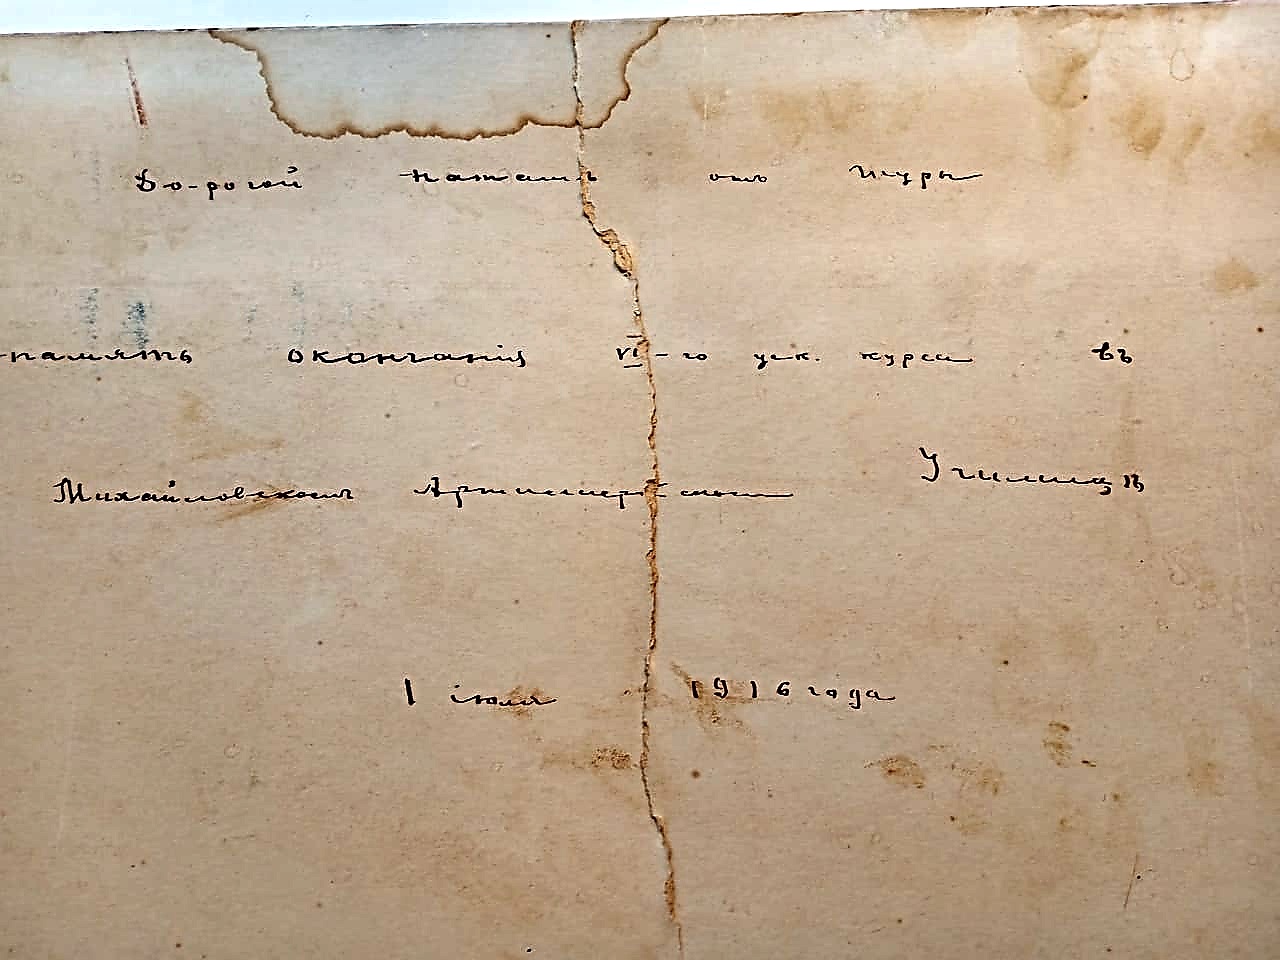 Дорогой Наташѣ отъ Шуры
память окончанія VI-го уск. курса въ
Михайловскомъ Артиллерійскомъ Училищѣ
1 іюля 1916 года